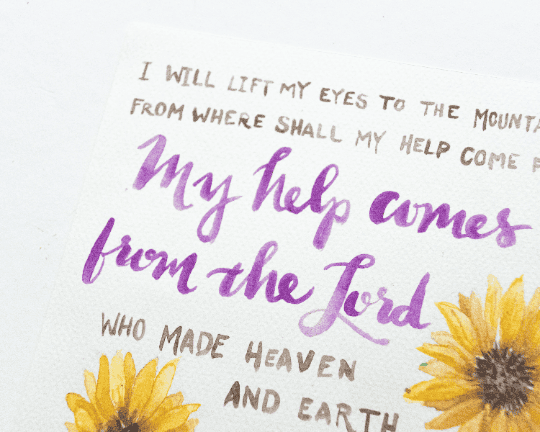 I WILL LIFT MY EYES TO THE
FROM WHERE SHALL MY HELP COME
My help comes
from the Lord
WHO MADE HEAVEN
AND EARTH